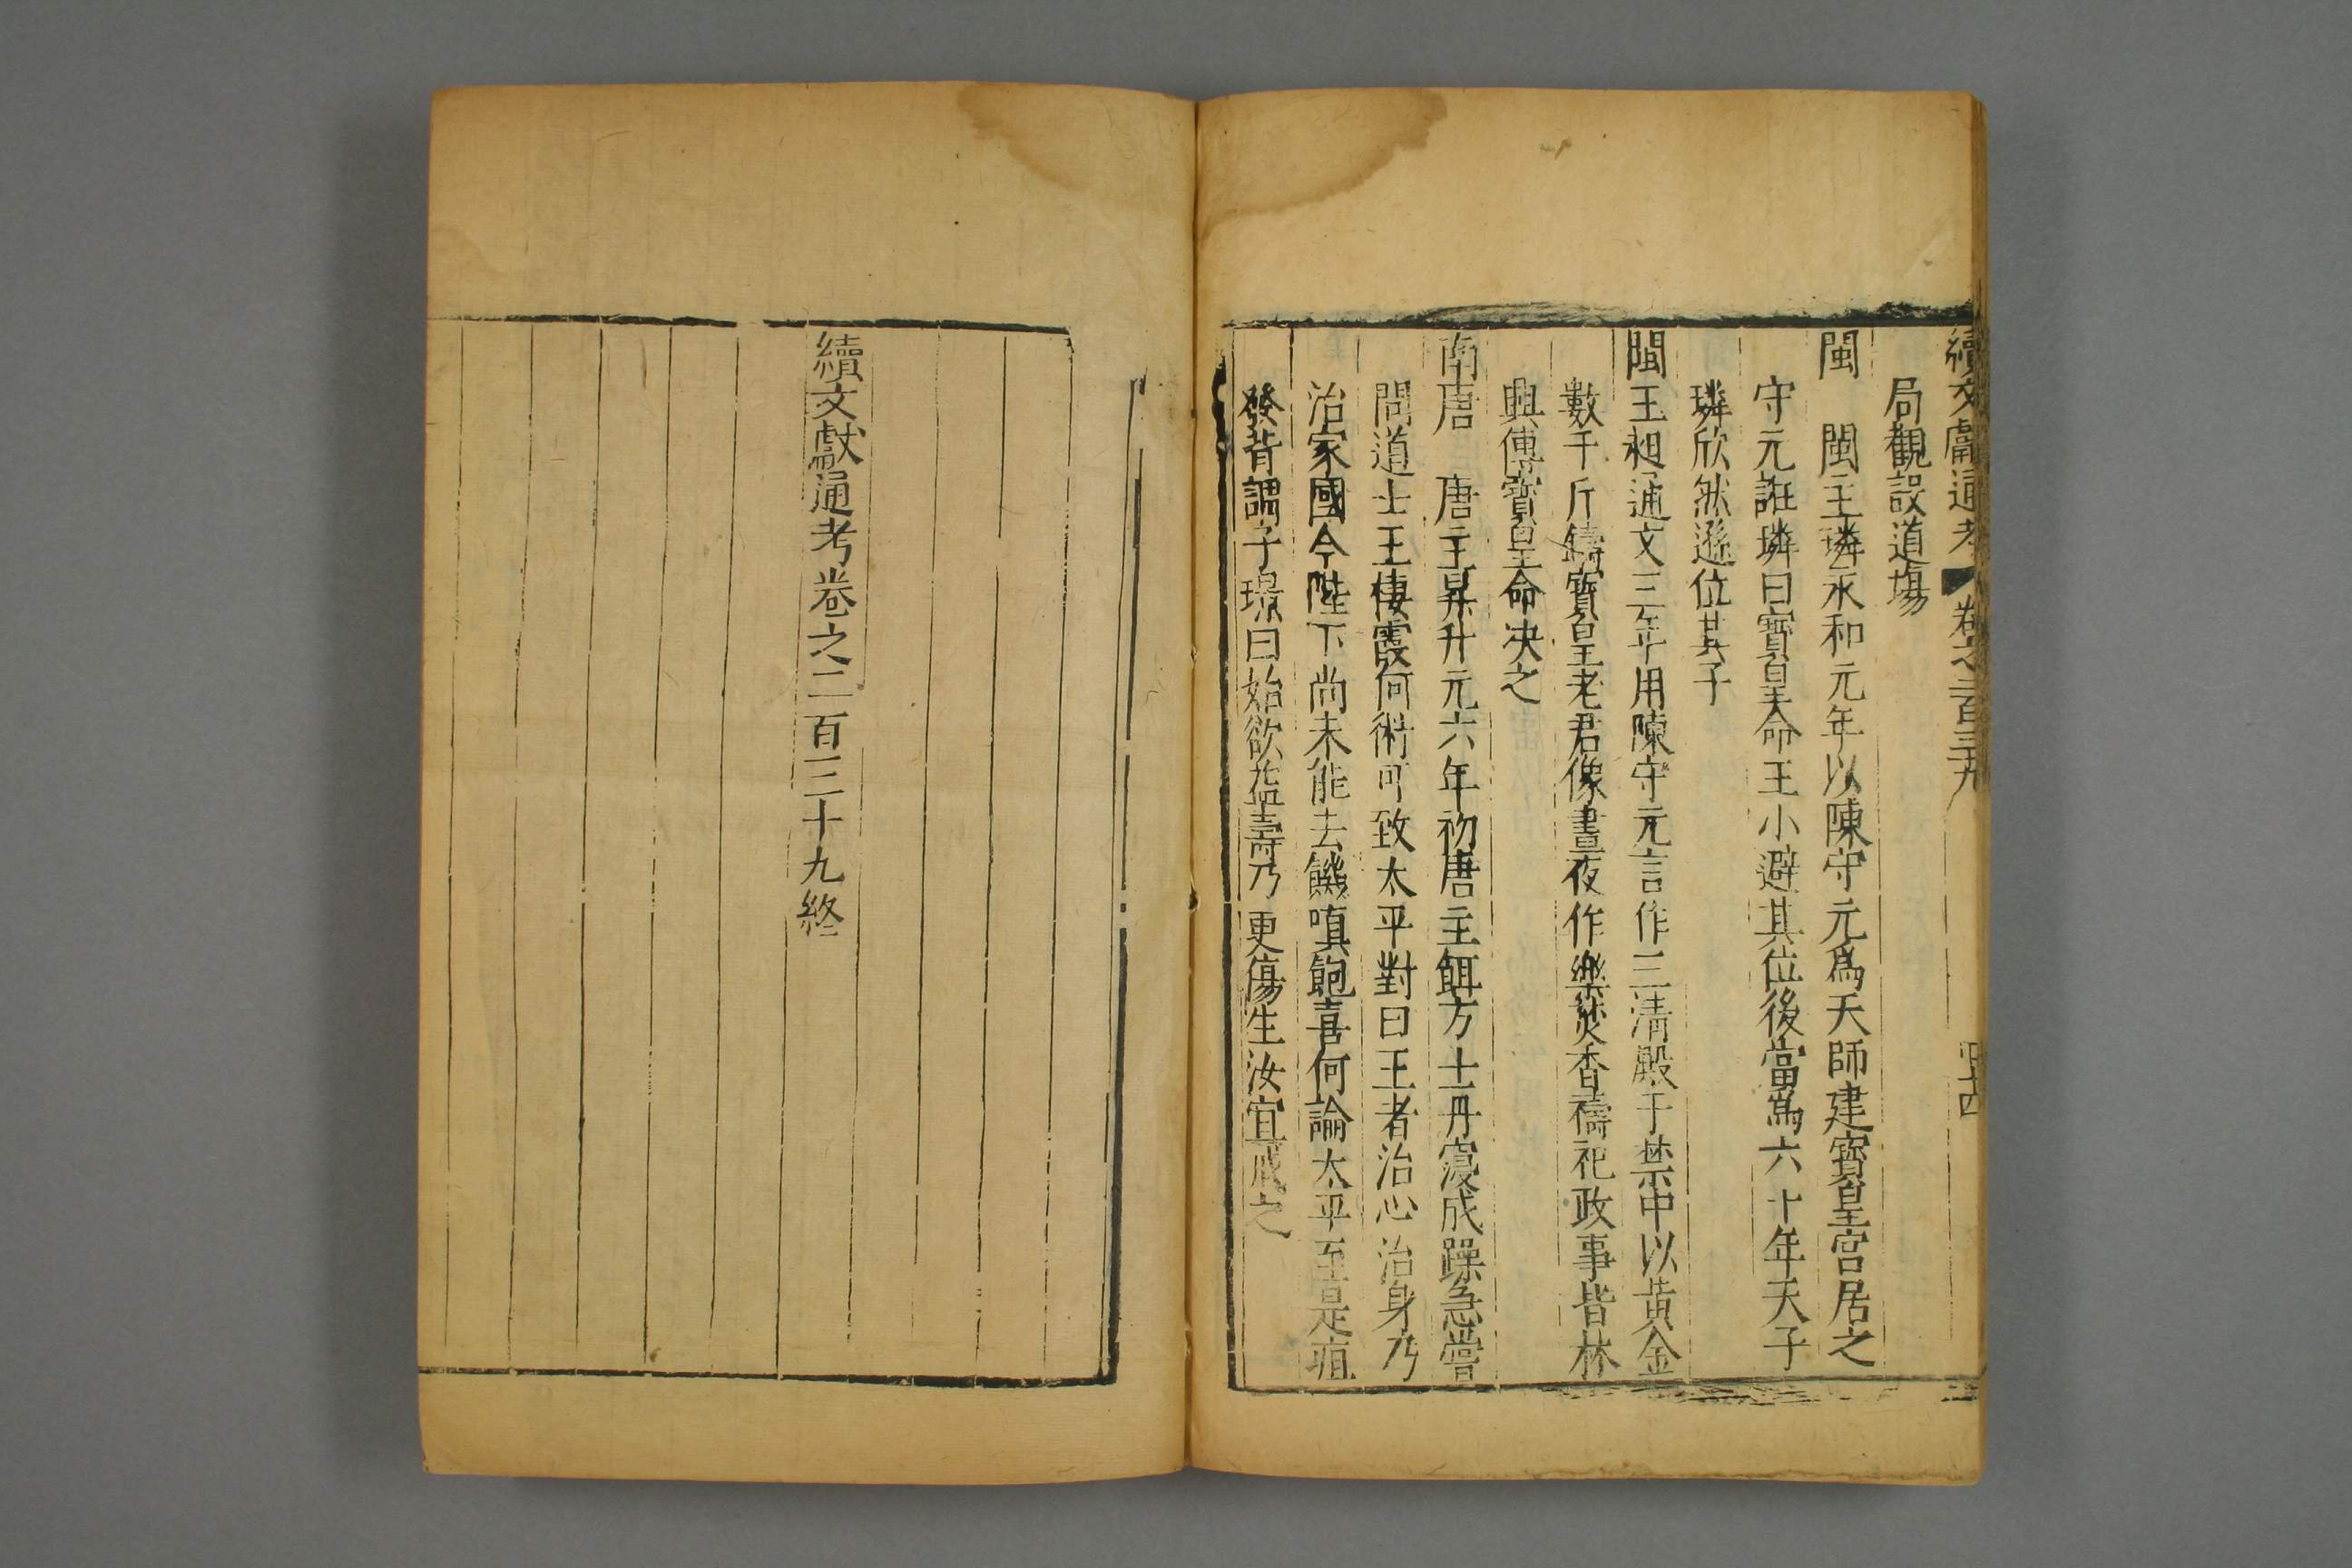 續文獻通考 卷之二百三十九 四十四
局觀設道場
閩 閩主璘永和元年以陳守元爲天師建寶皇宮居之
守元誑璘曰寶皇命王小避其位後當爲六十年天子
璘欣然遜位其子
閩王昶通文三年用陳守元言作三淸殿于禁中以黃金
數千斤鑄寶皇老君像晝夜作樂焚香禱祀政事皆林
興傳寶皇命决之
南唐 唐主昪升元六年初唐主餌方士丹寖成躁急嘗
問道士王棲霞何術可致太平對曰王者治心治身乃
治家國今陛下尚未能去饑嗔飽喜何論太平至是疽
發背謂子璟曰始欲益壽乃更傷生汝宜戒之
續文獻通考卷之二百三十九終